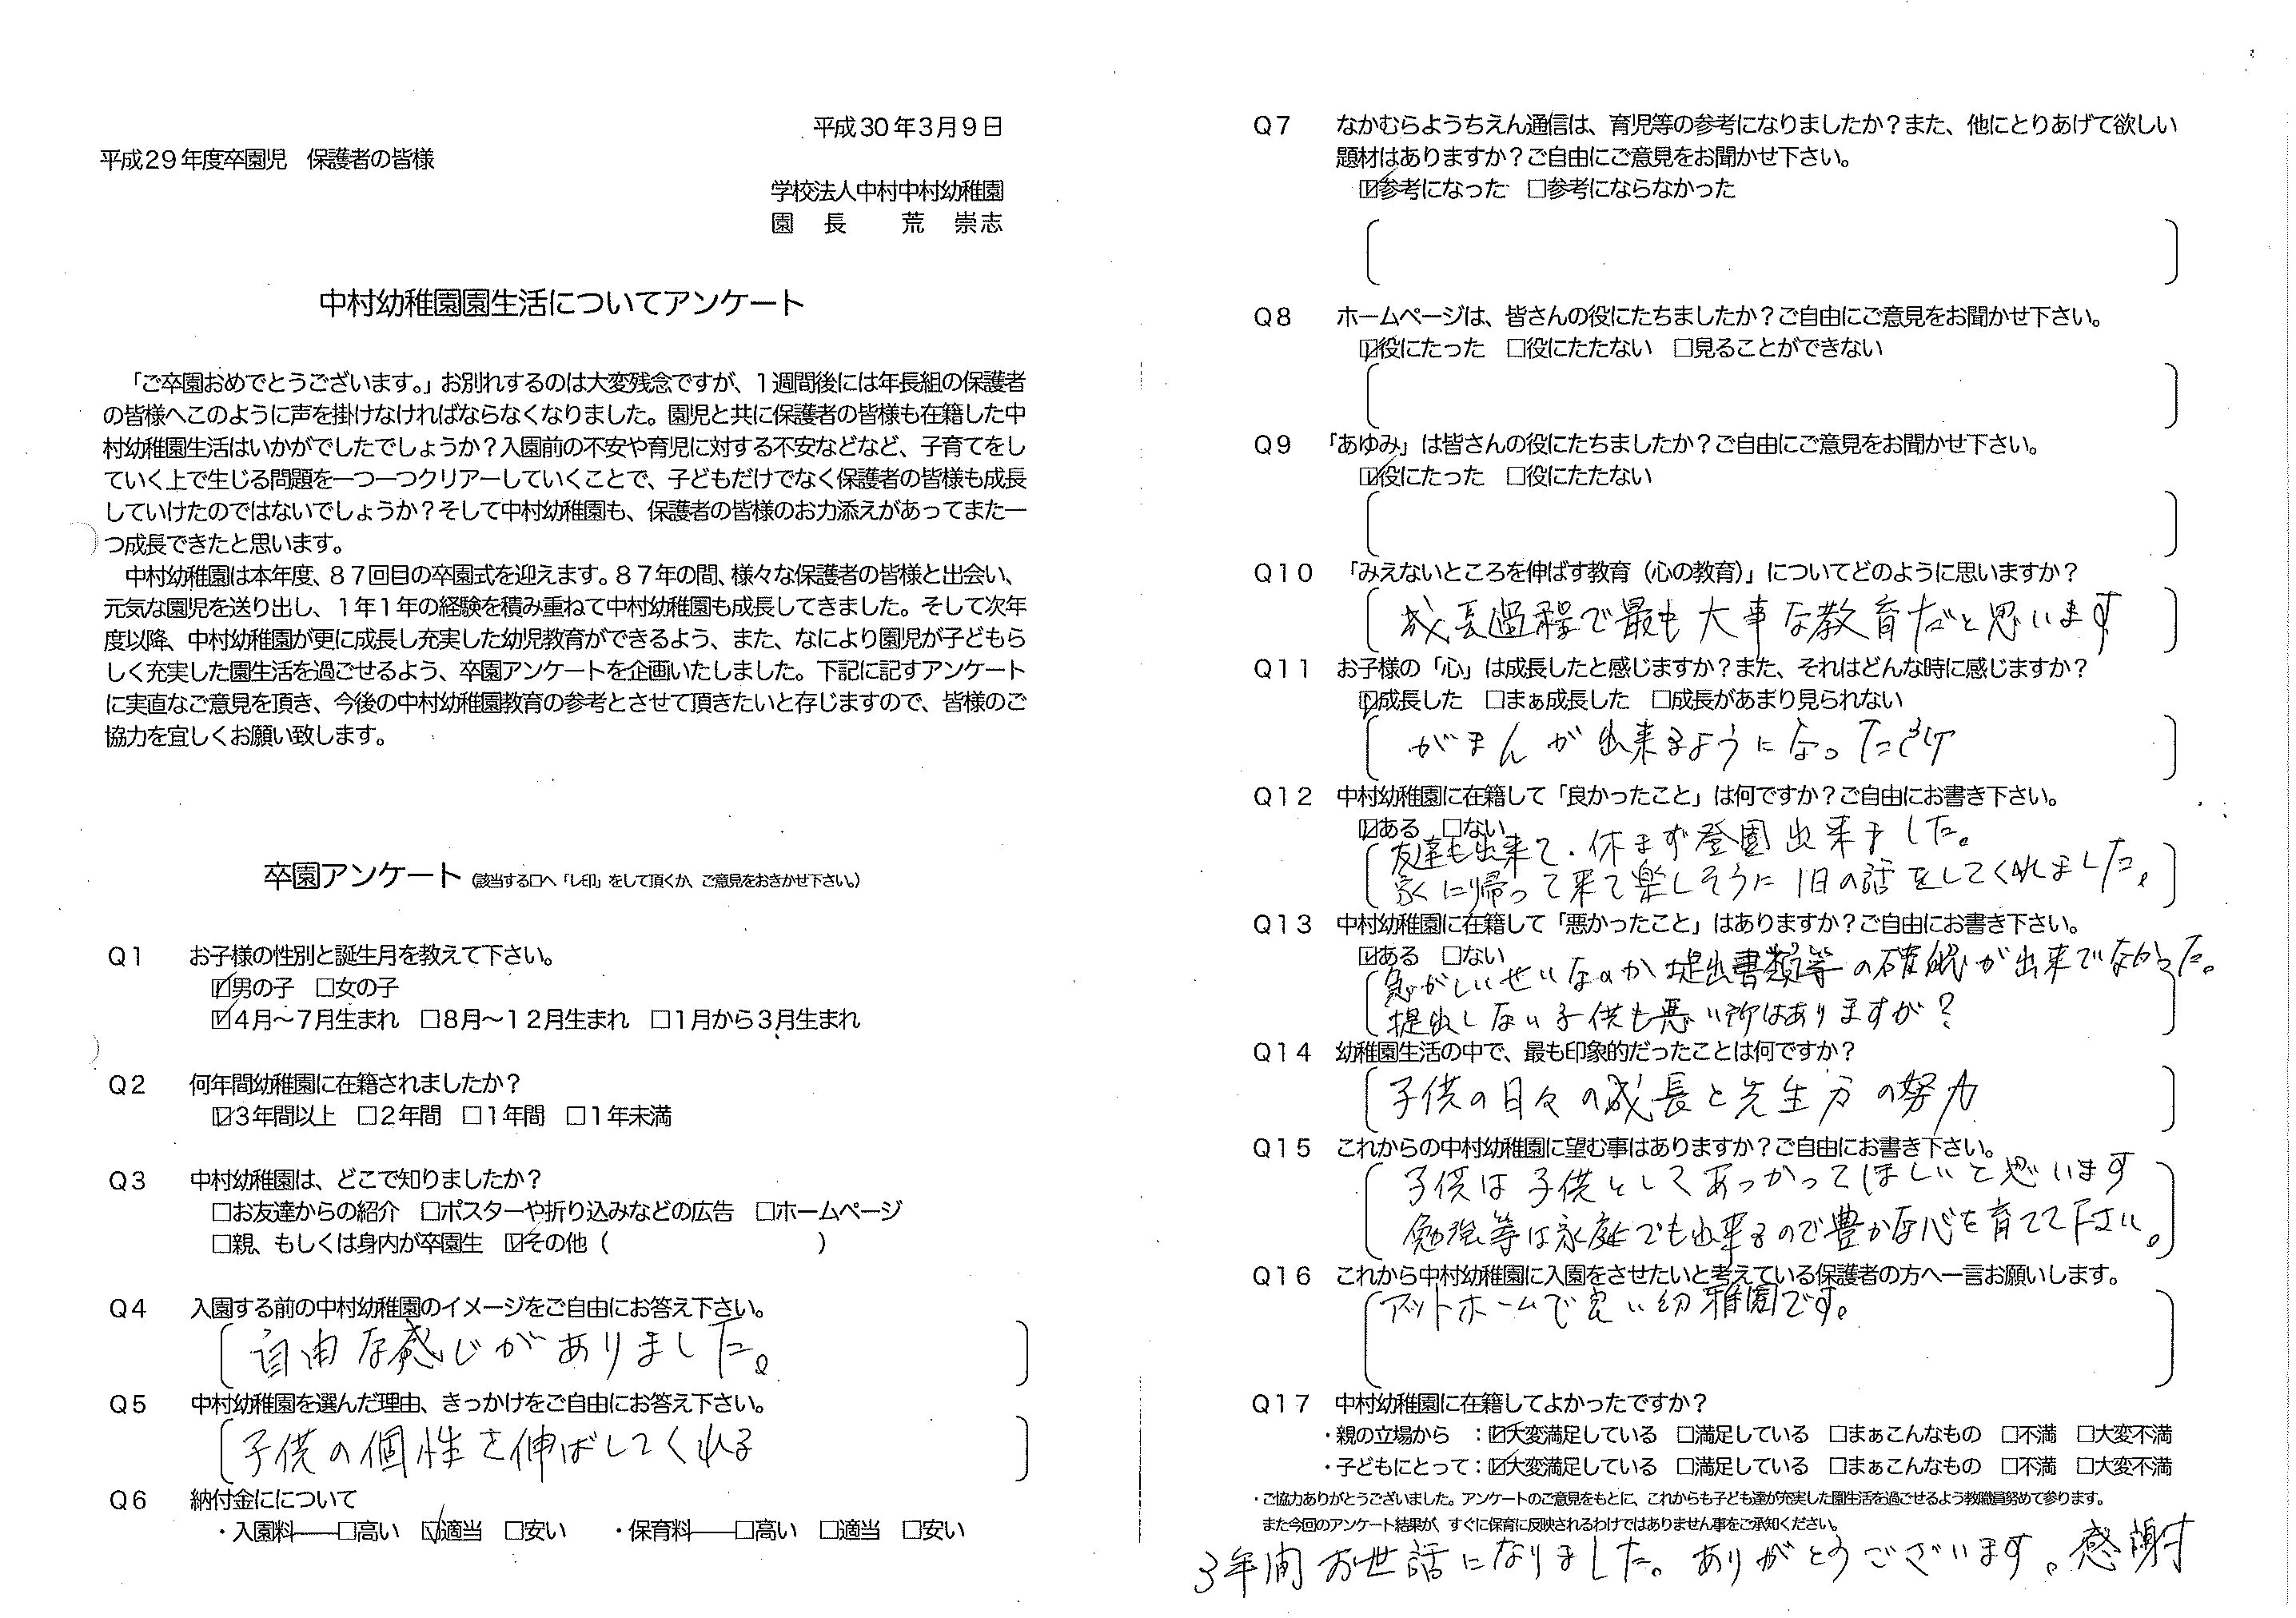 平成30年3月9日
平成29年度卒園児　保護者の皆様
学校法人中村中村幼稚園
園　長　　荒　崇志
中村幼稚園園生活についてアンケート
「ご卒園おめでとうございます。」お別れするのは大変残念ですが、1週間後には年長組の保護者
の皆様へこのように声を掛けなければならなくなりました。園児と共に保護者の皆様も在籍した中
村幼稚園生活はいかがでしたでしょうか？入園前の不安や育児に対する不安などなど、子育てをし
ていく上で生じる問題を一つ一つクリアーしていくことで、子どもだけでなく保護者の皆様も成長
していけたのではないでしょうか？そして中村幼稚園も、保護者の皆様のお力添えがあってまた一
つ成長できたと思います。
中村幼稚園は本年度、87回目の卒園式を迎えます。87年の間、様々な保護者の皆様と出会い、
元気な園児を送り出し、1年1年の経験を積み重ねて中村幼稚園も成長してきました。そして次年
度以降、中村幼稚園が更に成長し充実した幼児教育ができるよう、また、なにより園児が子どもら
しく充実した園生活を過ごせるよう、卒園アンケートを企画いたしました。下記に記すアンケート
に実直なご意見を頂き、今後の中村幼稚園教育の参考とさせて頂きたいと存じますので、皆様のご
協力を宜しくお願い致します。
卒園アンケート（該当する□へ「レ印」をして頂くか、ご意見をおきかせ下さい。）
Q1　お子様の性別と誕生月を教えて下さい。
☑男の子　□女の子
☑4月～7月生まれ　□8月～12月生まれ　□1月から3月生まれ
Q2　何年間幼稚園に在籍されましたか？
☑3年間以上　□2年間　□1年間　□1年未満
Q3　中村幼稚園は、どこで知りましたか？
□お友達からの紹介　□ポスターや折り込みなどの広告　□ホームページ
□親、もしくは身内が卒園生　☑その他（　　　　　　　　　）
Q4　入園する前の中村幼稚園のイメージをご自由にお答え下さい。
自由な感じがありました。
Q5　中村幼稚園を選んだ理由、きっかけをご自由にお答え下さい。
子供の個性を伸ばしてくれる
Q6　納付金にについて
・入園料――□高い　☑適当　□安い　・保育料――□高い　□適当　□安い
Q7　なかむらようちえん通信は、育児等の参考になりましたか？また、他にとりあげて欲しい
題材はありますか？ご自由にご意見をお聞かせ下さい。
☑参考になった　□参考にならなかった
Q8　ホームページは、皆さんの役にたちましたか？ご自由にご意見をお聞かせ下さい。
☑役にたった　□役にたたない　□見ることができない
Q9　「あゆみ」は皆さんの役にたちましたか？ご自由にご意見をお聞かせ下さい。
☑役にたった　□役にたたない
Q10　「みえないところを伸ばす教育（心の教育）」についてどのように思いますか？
成長過程で最も大事な教育だと思います
Q11　お子様の「心」は成長したと感じますか？また、それはどんな時に感じますか？
☑成長した　□まぁ成長した　□成長があまり見られない
がまんが出来るようになった時
Q12　中村幼稚園に在籍して「良かったこと」は何ですか？ご自由にお書き下さい。
☑ある　□ない
友達も出来て、休まず登園出来ました。
家に帰って来て楽しそうに1日の話をしてくれました。
Q13　中村幼稚園に在籍して「悪かったこと」はありますか？ご自由にお書き下さい。
☑ある　□ない
急がしいせいなのか提出書類等の確認が出来てなかった。
提出しない子供も悪い所はありますが？
Q14　幼稚園生活の中で、最も印象的だったことは何ですか？
子供の日々の成長と先生方の努力
Q15　これからの中村幼稚園に望む事はありますか？ご自由にお書き下さい。
子供は子供としてあつかってほしいと思います
勉強等は家庭でも出来るので豊かな心を育てて下さい。
Q16　これから中村幼稚園に入園をさせたいと考えている保護者の方へ一言お願いします。
アットホームで良い幼稚園です。
Q17　中村幼稚園に在籍してよかったですか？
・親の立場から　：☑大変満足している　□満足している　□まぁこんなもの　□不満　□大変不満
・子どもにとって：☑大変満足している　□満足している　□まぁこんなもの　□不満　□大変不満
・ご協力ありがとうございました。アンケートのご意見をもとに、これからも子ども達が充実した園生活を過ごせるよう教職員努めて参ります。
また今回のアンケート結果が、すぐに保育に反映されるわけではありません事をご承知ください。
3年間お世話になりました。ありがとうございます。感謝